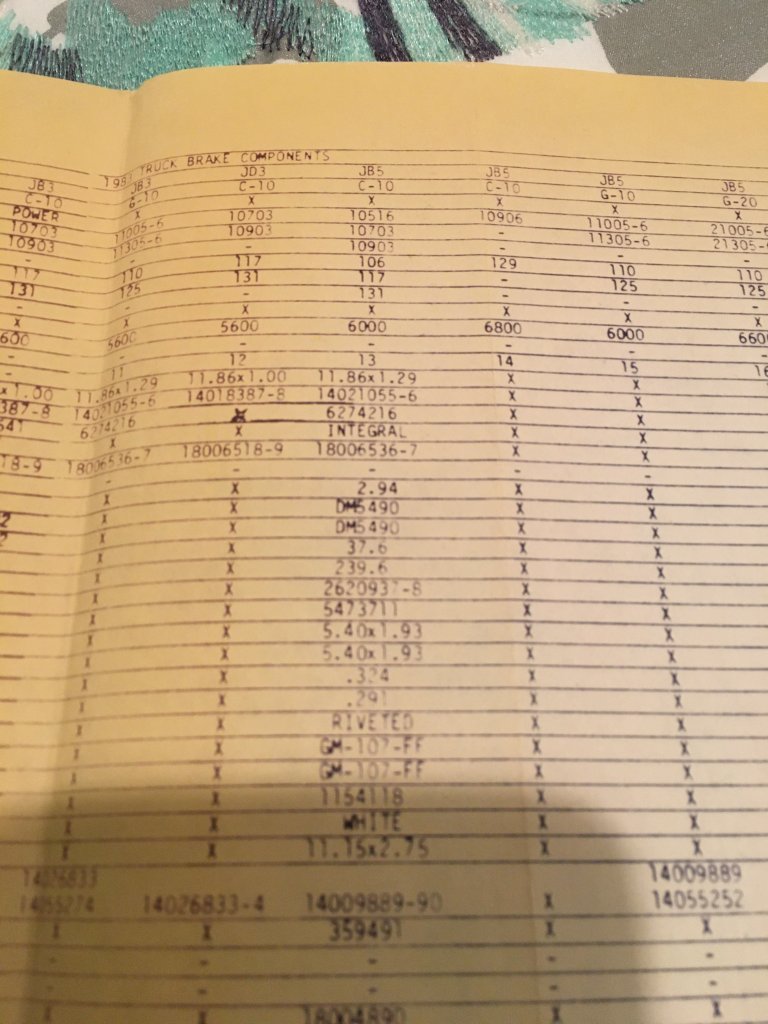 1983 TRUCK BRAKE COMPONENTS
JB3 JB3 JD3 JB5 JB5 JB5 JB5
C-10 G-10 C-10 C-10 C-10 G-10 G-20
POWER X X X X X X
10703 11005-6 10703 10516 10906 11005-6 21005-6
10903 11305-6 10903 10703 - 11305-6 21305-
- - - 10903 - - -
117 110 117 106 129 110 110
131 125 131 117 - 125 125
- - - 131 - - -
X X X X X X
600 5600 5600 6000 6800 6000 660
- - - - - - -
- 11 12 13 14 15 16
x1.00 11.86x1.29 11.86x1.00 11.86x1.29 X X
387-8 14021055-6 14018387-8 14021055-6 X X
641 6274216 X 6274216 X X
X X INTEGRAL X X
18-9 18006536-7 18006518-9 18006536-7 X X
- - - - -
X X 2.94 X X
X X DM5490 X X
X X DM5490 X X
X X 37.6 X X
X X 239.6 X X
X X 2620937-8 X X
X X 5473711 X X
X X 5.40x1.93 X X
X X 5.40x1.93 X X
X X .324 X X
X X .291 X X
X X RIVETED X X
X X GM-107-FF X X
X X GM-107-FF X X
X X 1154118 X X
X X WHITE X X
X X 11.15x2.75 X X
14026833 14009889
14055274 14026833-4 14009889-90 X 14055252
X X 359491 X X
- - - - -
- - - - -
X X 18004890 X X